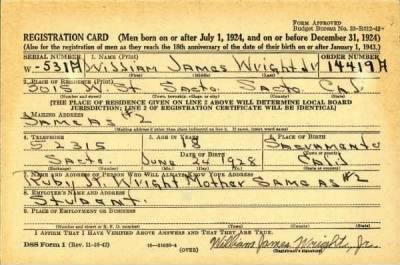 FORM APPROVED
Budget Bureau No. 33-R112-42
REGISTRATION CARD (Men born on or after July 1, 1924, and on or before December 31, 1924)
(Also for the registration of men as they reach the 18th anniversary of the date of their birth on or after January 1, 1943.)
SERIAL NUMBER 1. NAME (Print) ORDER NUMBER
W-531A William James Wright Jr 14419A
(First) (Middle) (Last)
2. PLACE OF RESIDENCE (Print)
3015 W. St. Sacto. Sacto. Cal
(Number and street) (Town, township, village, or city) (County) (State)
[THE PLACE OF RESIDENCE GIVEN ON LINE 2 ABOVE WILL DETERMINE LOCAL BOARD
JURISDICTION; LINE 2 OF REGISTRATION CERTIFICATE WILL BE IDENTICAL]
3. MAILING ADDRESS
Same as #2
[Mailing address if other than place indicated on line 2. If same, insert word same]
4. TELEPHONE 5. AGE IN YEARS 6. PLACE OF BIRTH
5 2315 18 Sacramento
DATE OF BIRTH
Sacto. June 24 1928 Calif
(Exchange) (Number) (Mo.) (Day) (Yr.) (State or country)
7. NAME AND ADDRESS OF PERSON WHO WILL ALWAYS KNOW YOUR ADDRESS
Wright Mother Same as #2
8. EMPLOYER'S NAME AND ADDRESS
Student.
9. PLACE OF EMPLOYMENT OR BUSINESS
(Number and street or R. F. D. number) (Town) (County) (State)
I AFFIRM THAT I HAVE VERIFIED ABOVE ANSWERS AND THAT THEY ARE TRUE.
DSS Form 1 (Rev. 11-16-42) (OVER) William James Wright, Jr.
(Registrant's signature)